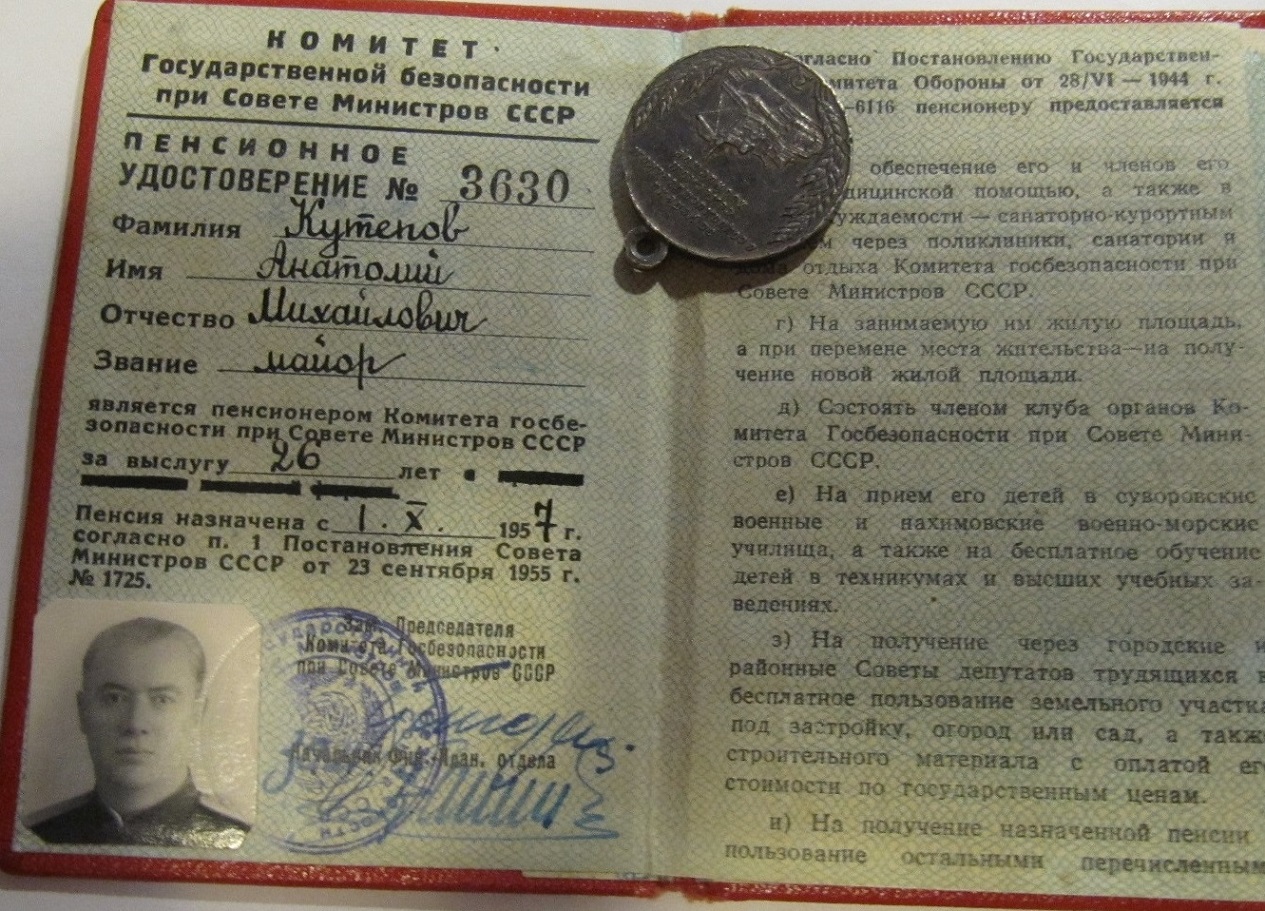 КОМИТЕТ
Государственной безопасности
при Совете Министров СССР
ПЕНСИОННОЕ
УДОСТОВЕРЕНИЕ № 3630
Фамилия Кутепов
Имя Анатолий
Отчество Михайлович
Звание майор
является пенсионером Комитета госбе-
зопасности при Совете Министров СССР
за выслугу 26 лет
Пенсия назначена с 1.X. 1957 г.
согласно п. 1 Постановления Совета
Министров СССР от 23 сентября 1955 г.
№ 1725.
Зам. Председателя
Комитета Госбезопасности
при Совете Министров СССР
Начальник Фин.-План. отдела
Постановлению Государствен-
Обороны от 28/VI — 1944 г.
-6116 пенсионеру предоставляется
обеспечение его и членов его
помощью, а также в
— санаторно-курортным
через поликлиники, санатории и
дома отдыха Комитета госбезопасности при
Совете Министров СССР.
г) На занимаемую им жилую площадь,
а при перемене места жительства—на полу-
чение новой жилой площади.
д) Состоять членом клуба органов Ко-
митета Госбезопасности при Совете Мини-
стров СССР.
е) На прием его детей в суворовские
военные и нахимовские военно-морские
училища, а также на бесплатное обучение
детей в техникумах и высших учебных за-
ведениях.
з) На получение через городские и
районные Советы депутатов трудящихся в
бесплатное пользование земельного участка
под застройку, огород или сад, а также
строительного материала с оплатой его
стоимости по государственным ценам.
и) На получение назначенной пенсии
пользование остальными перечисленным